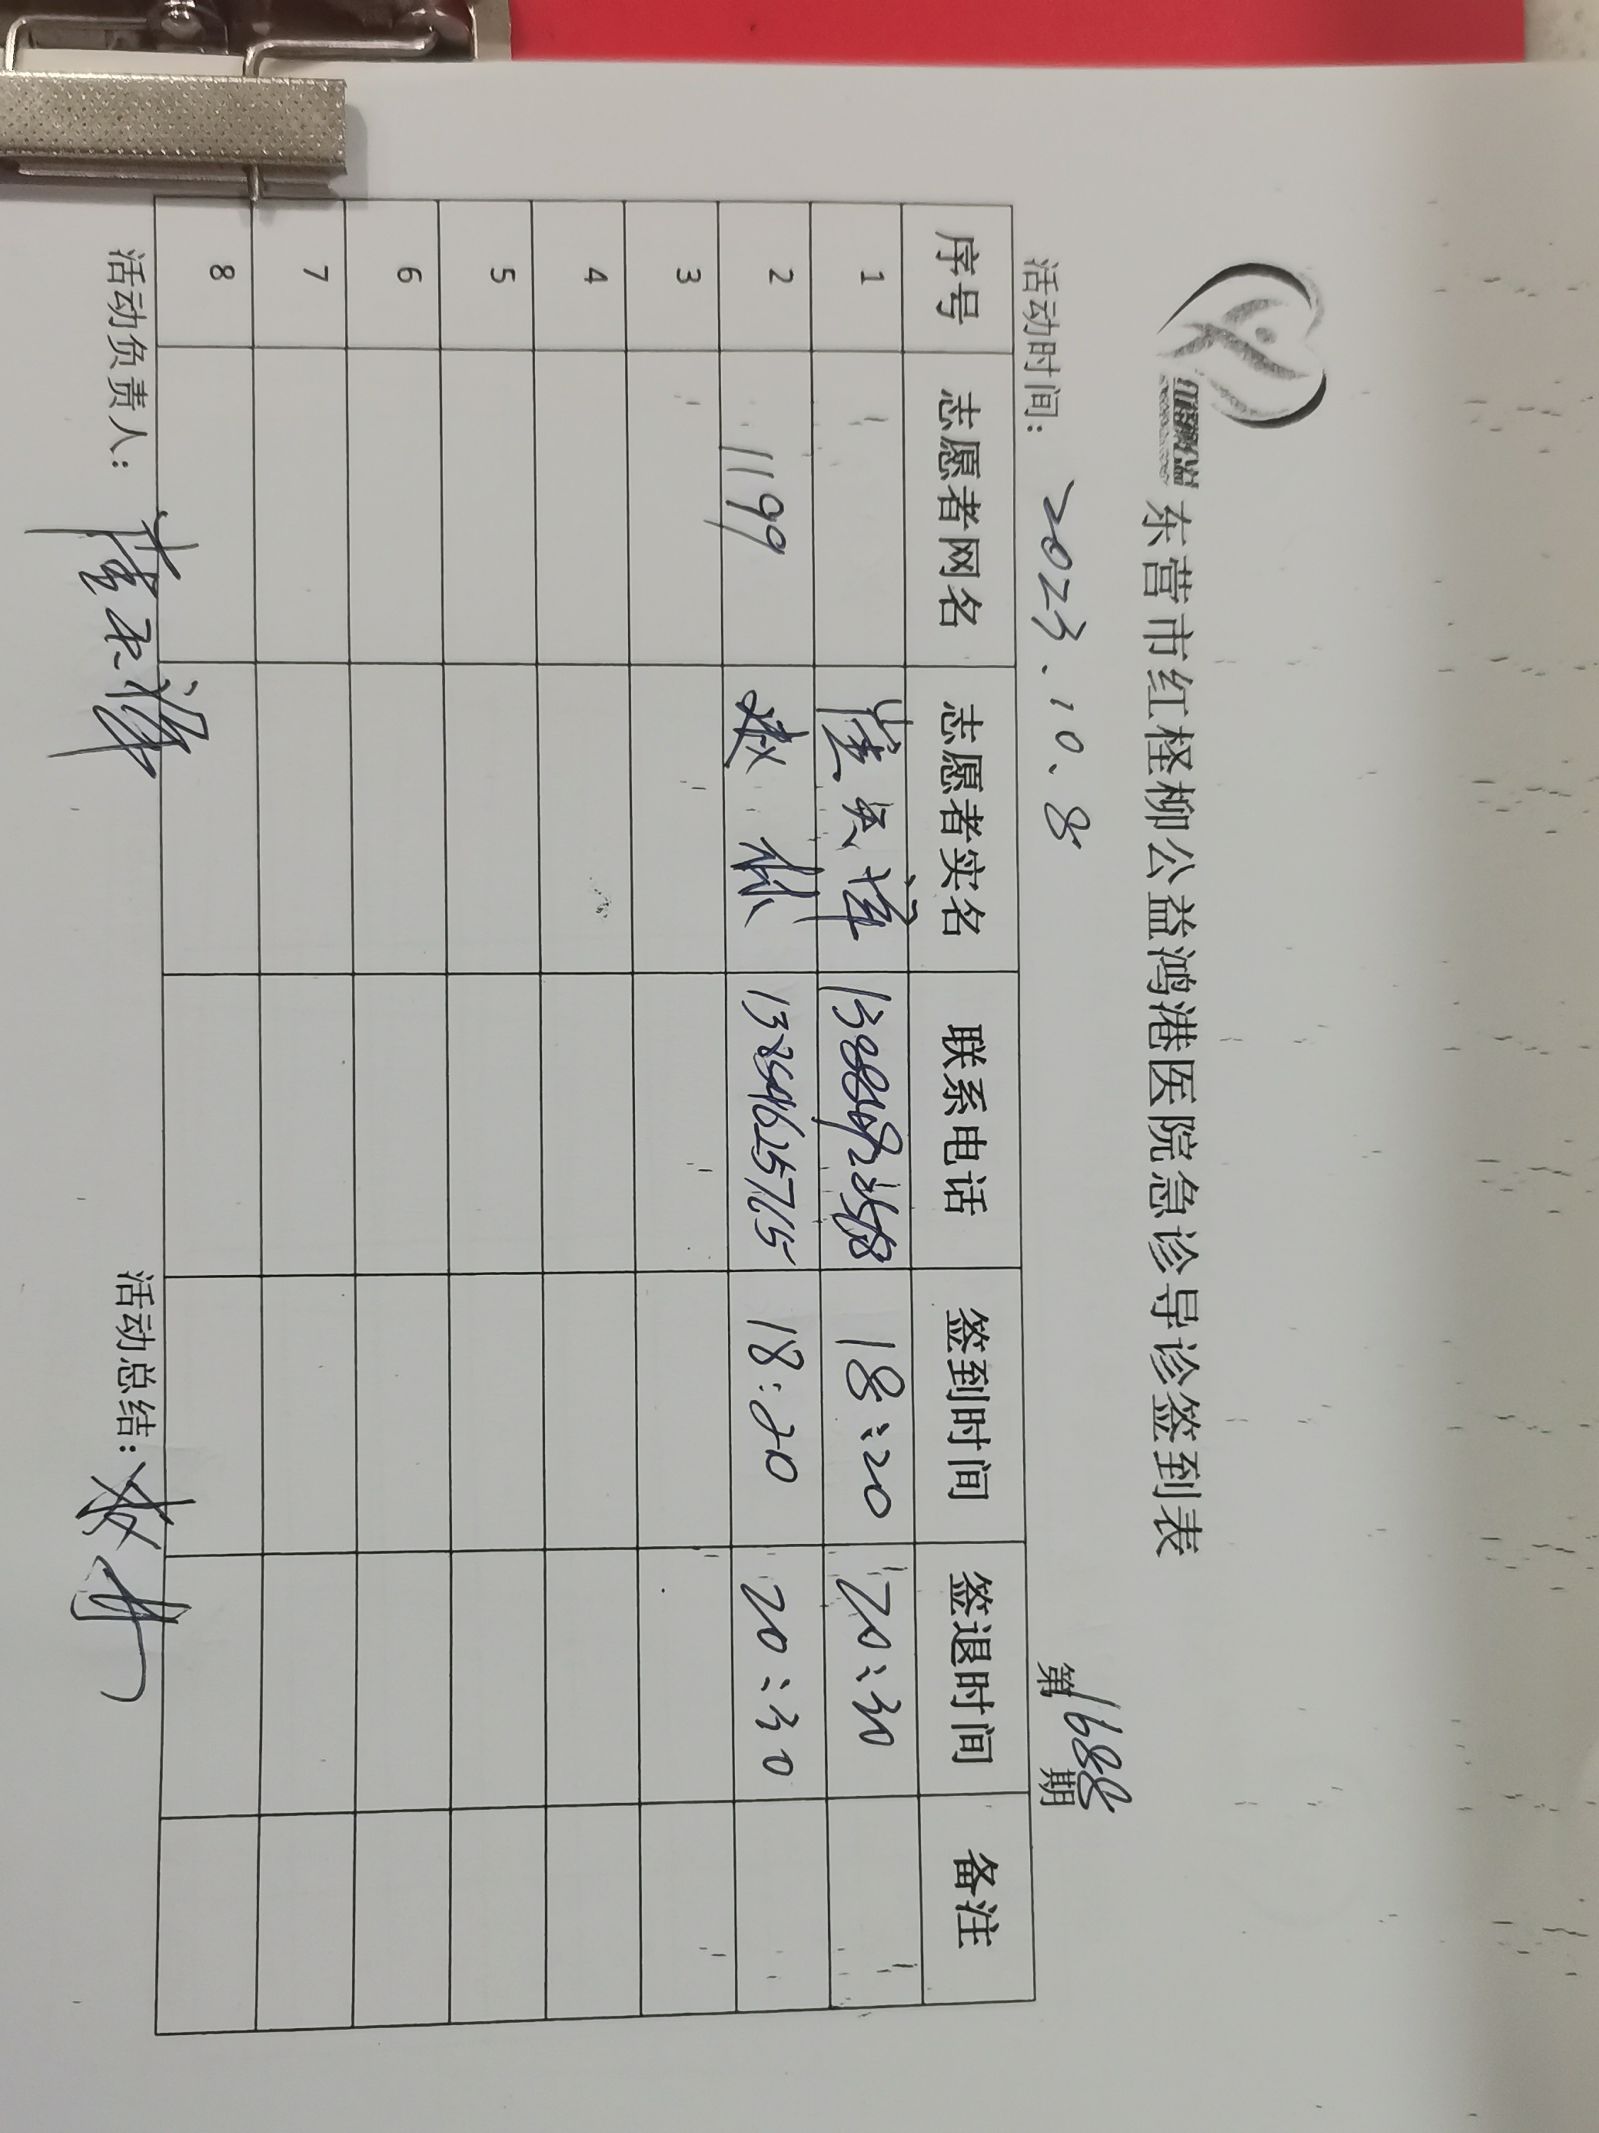 东营市红柽柳公益鸿港医院急诊导诊签到表
活动时间： 2023.10.8 第1688期
序号 志愿者网名 志愿者实名 联系电话 签到时间 签退时间 备注
1 18:20 20:30
2 1199 13854625715 18:20 20:30
3
4
5
6
7
8
活动负责人： 活动总结：